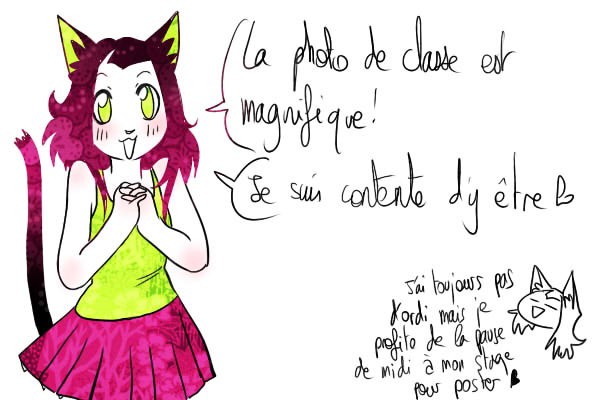 La photo de classe est
magnifique!
Je suis contente d'y être
J'ai toujours pas
d'ordi mais je
profite de la pause
de midi à mon stage
pour poster